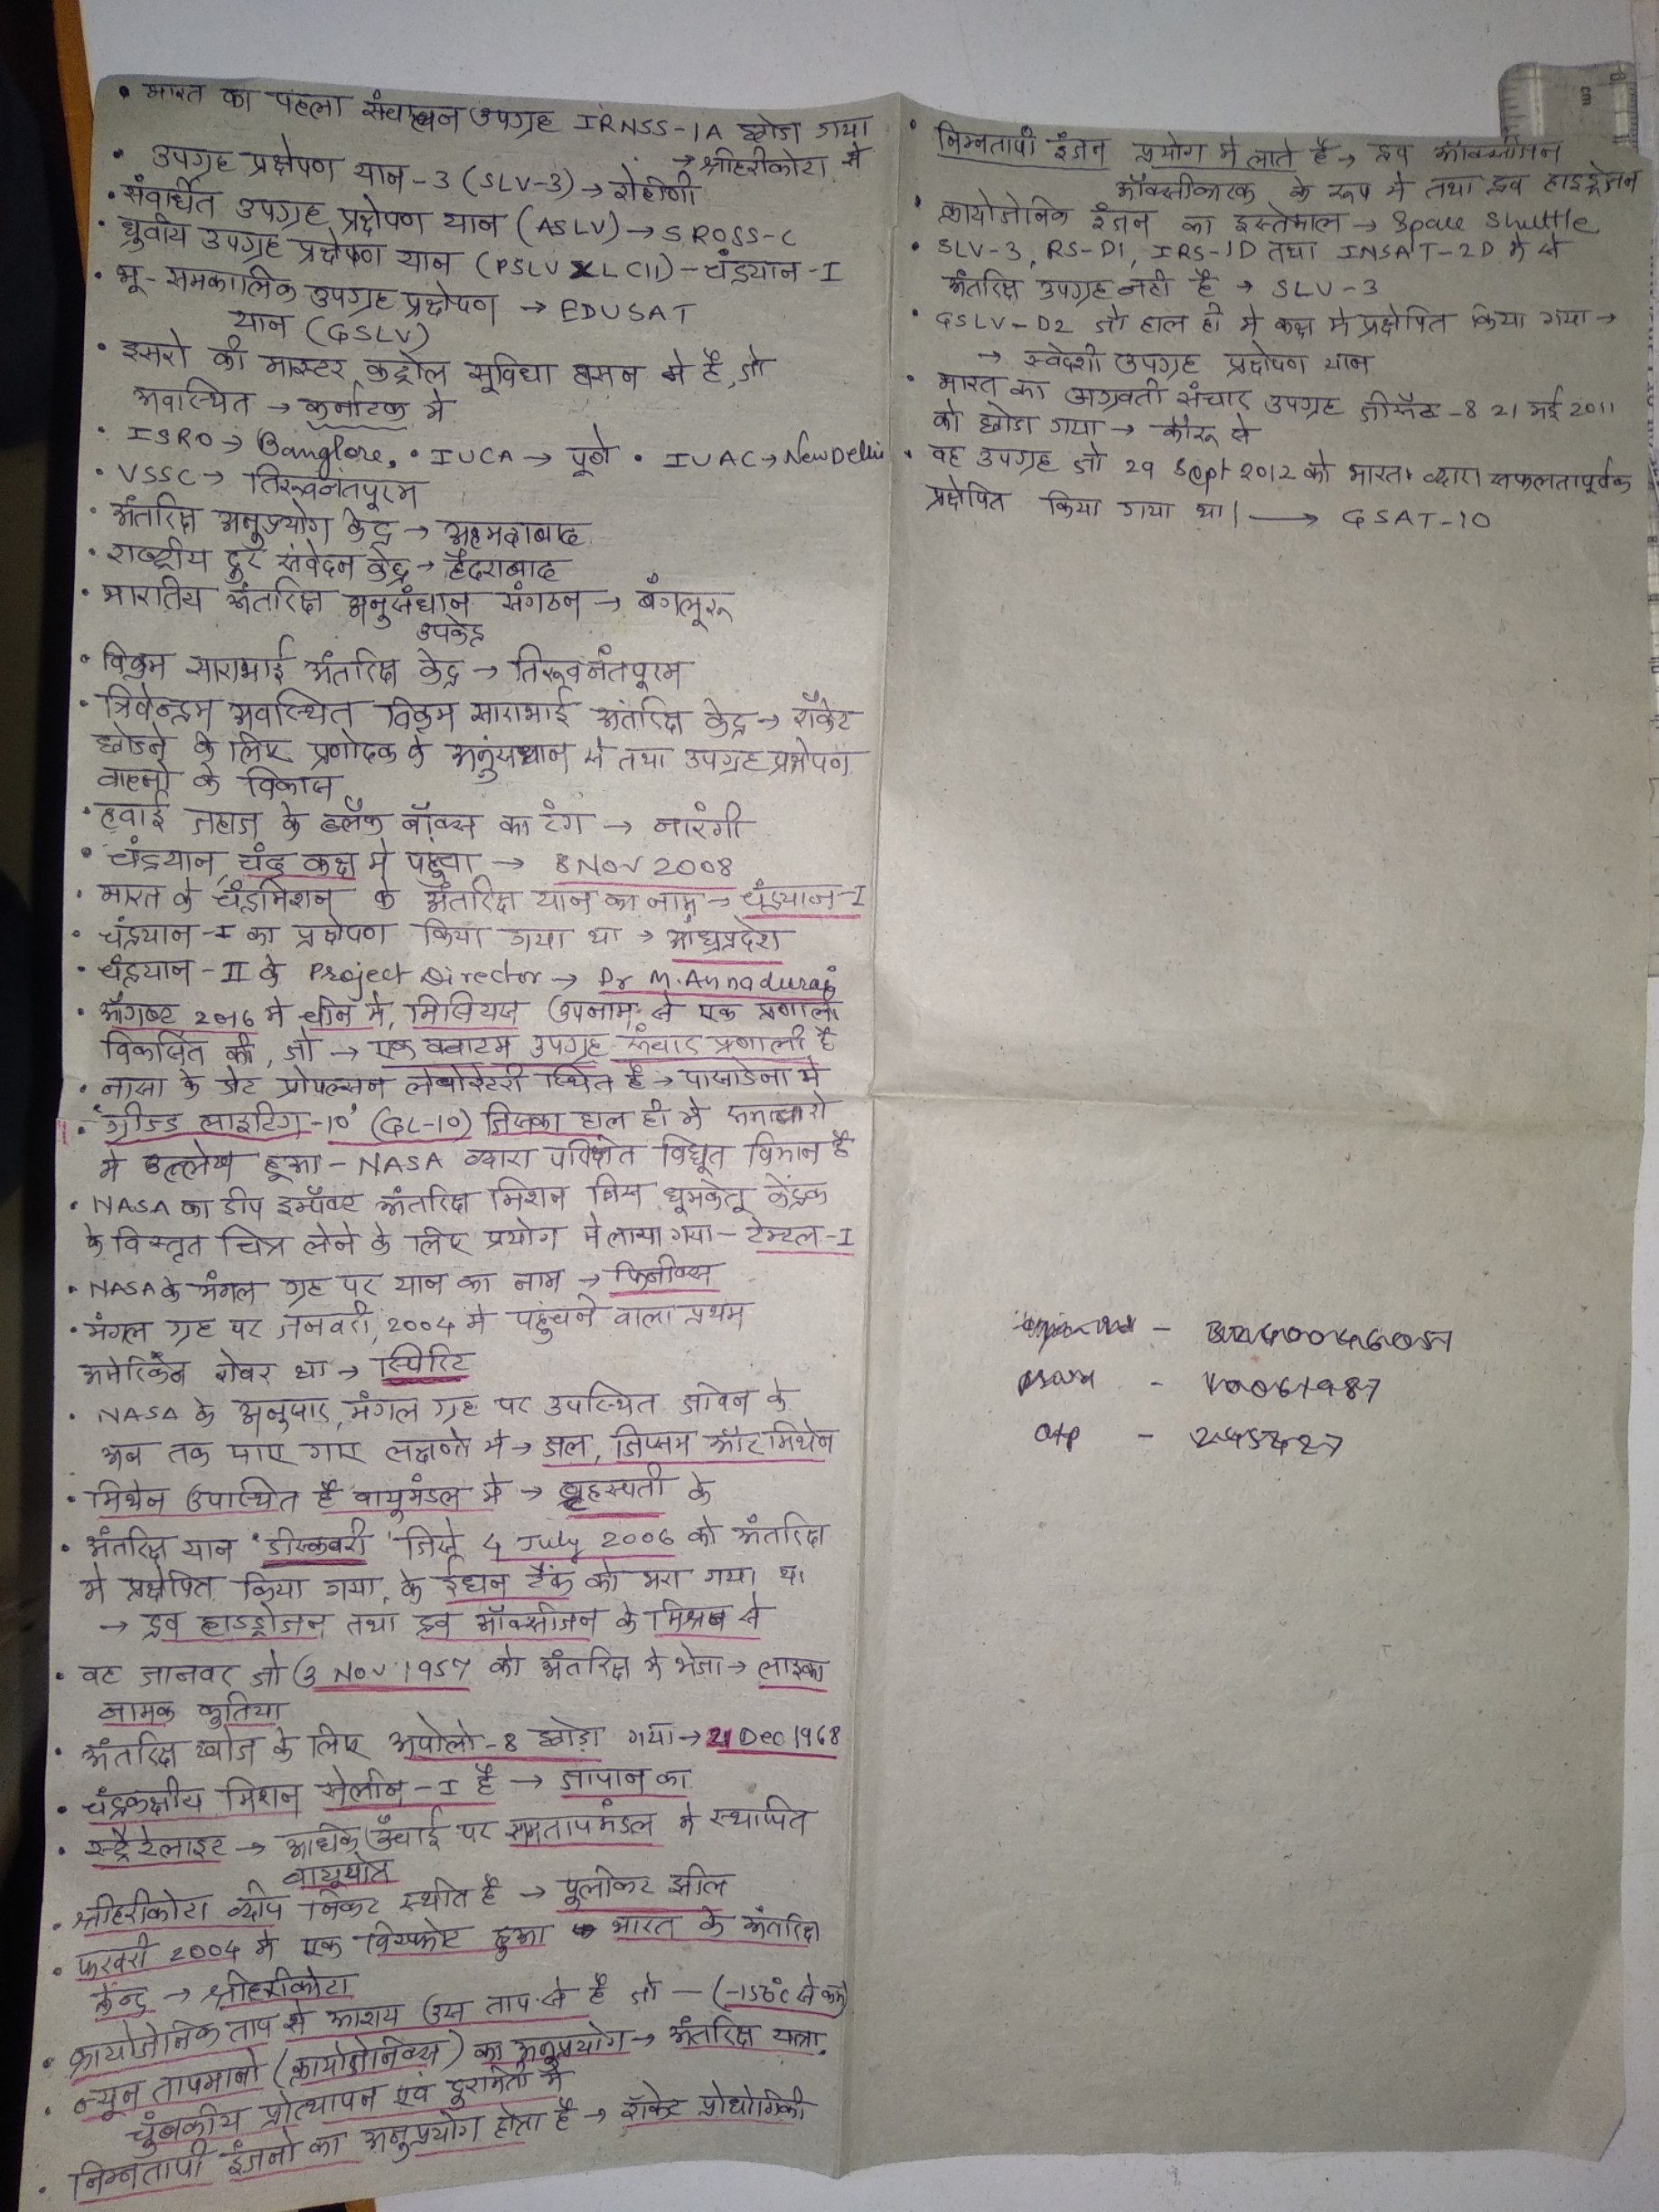 • भारत का पहला संचालन उपग्रह IRNSS-1A छोडा गया
→ श्रीहरीकोटा से
• उपग्रह प्रक्षेपण यान-3 (SLV-3) → रोहीणी
• संवर्धित उपग्रह प्रक्षेपण यान (ASLV) → SROSS-C
• ध्रुवीय उपग्रह प्रक्षेपण यान (PSLV XL C11) - चंद्रयान-I
• भू-समकालिक उपग्रह प्रक्षेपण → EDUSAT
यान (GSLV)
• इसरो की मास्टर कंट्रोल सूविधा हासन मे है, जो
अवास्थित → कर्नाटक मे
• ISRO → Banglore, • IUCA → पूणे • IUAC → New Delhi
• VSSC → तिरूवनंतपूरम
• अंतरिक्ष अनुप्रयोग केंद्र → अहमदाबाद
• राष्ट्रीय दुर संवेदन केंद्र → हैदराबाद
• भारतिय अंतरिक्ष अनुसंधान संगठन → बंगलूरू
उपकेंद्र
• विक्रम साराभाई अंतरिक्ष केंद्र → तिरूवनंतपूरम
• त्रिवेन्द्रम अवस्थित विक्रम साराभाई अंतरिक्ष केंद्र → रॉकेट
छोडने के लिए प्रणोदक के अनुंसधान मे तथा उपग्रह प्रक्षेपण
वाहनो के विकास
• हवाई जहाज के ब्लॅक बॉक्स का रंग → नारंगी
• चंद्रयान, चंद्र कक्ष मे पहुंचा → 8 Nov 2008
• भारत के चंद्रमिशन के अंतरिक्ष यान का नाम → चंद्रयान-I
• चंद्रयान-I का प्रक्षेपण किया गया था → आंध्रप्रदेश
• चंद्रयान-II के Project Director → Dr M. Annadurai
• ऑगस्ट 2016 मे चीन मे, मिसियस उपनाम से एक प्रणाली
विकसित की, जो → एक क्वांटम उपग्रह संचार प्रणाली है
• नासा के जेट प्रोपल्सन लेबोरेटरी स्थित है → पासाडेना मे
• 'ग्रीज्ड लाइटिंग-10' (GL-10) जिसका हाल ही मे समाचारो
मे उल्लेख हूआ - NASA व्दारा परिक्षित विद्यूत विमान है
• NASA का डीप इम्पॅक्ट अंतरिक्ष मिशन किस धूमकेतू केंद्रक
के विस्तृत चित्र लेने के लिए प्रयोग मे लाया गया - टेम्टल-I
• NASA के मंगल ग्रह पर यान का नाम → फिनीक्स
• मंगल ग्रह पर जनवरी, 2004 मे पहुंचने वाला प्रथम
अमेरिकन रोवर था → स्पिरिट
• NASA के अनुसार, मंगल ग्रह पर उपस्थित जीवन के
अब तक पाए गए लक्षणो मे → जल, जिप्सम और मिथेन
• मिथेन उपास्थित है वायूमंडल मे → बृहस्पती के
• अंतरिक्ष यान 'डीस्कवरी' जिसे 4 July 2006 को अंतरिक्ष
मे प्रक्षेपित किया गया, के ईंधन टैंक को भरा गया था
→ द्रव हाइड्रोजन तथा द्रव ऑक्सीजन के मिश्रण से
• वह जानवर जो 3 Nov 1957 को अंतरिक्ष मे भेजा → लाइका
नामक कुतिया
• अंतरिक्ष खोज के लिए अपोलो-8 छोडा गया → 21 Dec 1968
• चंद्रकक्षीय मिशन सेलीन-I है → जापान का
• स्ट्रैटेलाइट → अधिक उँचाई पर समतापमंडल मे स्थापित
वायूपोत
• श्रीहरीकोटा व्दीप निकट स्थीत है → पूलीकट झील
• फरवरी 2004 मे एक विस्फोट हूआ भारत के अंतरिक्ष
केंन्द्र → श्रीहरीकोटा
• क्रायोजेनिक ताप से आशय उस ताप से है जो - (-150°c से कम)
• न्यून तापमानो (क्रायोजेनिक्स) का अनुप्रयोग → अंतरिक्ष यात्रा,
चुंबकीय प्रोत्थापन एवं दुरामिती मे
• निम्नतापी इंजनो का अनुप्रयोग होता है → रॉकेट प्रोद्योगिकी
• निम्नतापी इंजन प्रयोग मे लाते है → द्रव ऑक्सीजन
ऑक्सीकारक के रूप मे तथा द्रव हाइड्रोजन
• क्रायोजेनिक इंजन का इस्तेमाल → Space Shuttle
• SLV-3, RS-D1, IRS-1D तथा INSAT-2D मे से
अंतरिक्ष उपग्रह नही है → SLV-3
• GSLV-D2 जो हाल ही मे कक्ष मे प्रक्षेपित किया गया →
→ स्वदेशी उपग्रह प्रक्षेपण यान
• भारत का अग्रवती संचार उपग्रह जीसॅट-8 21 मई 2011
को छोडा गया → कौरू से
• वह उपग्रह जो 29 Sept 2012 को भारत व्दारा सफलतापूर्वक
प्रक्षेपित किया गया था। → GSAT-10
otp - 245427